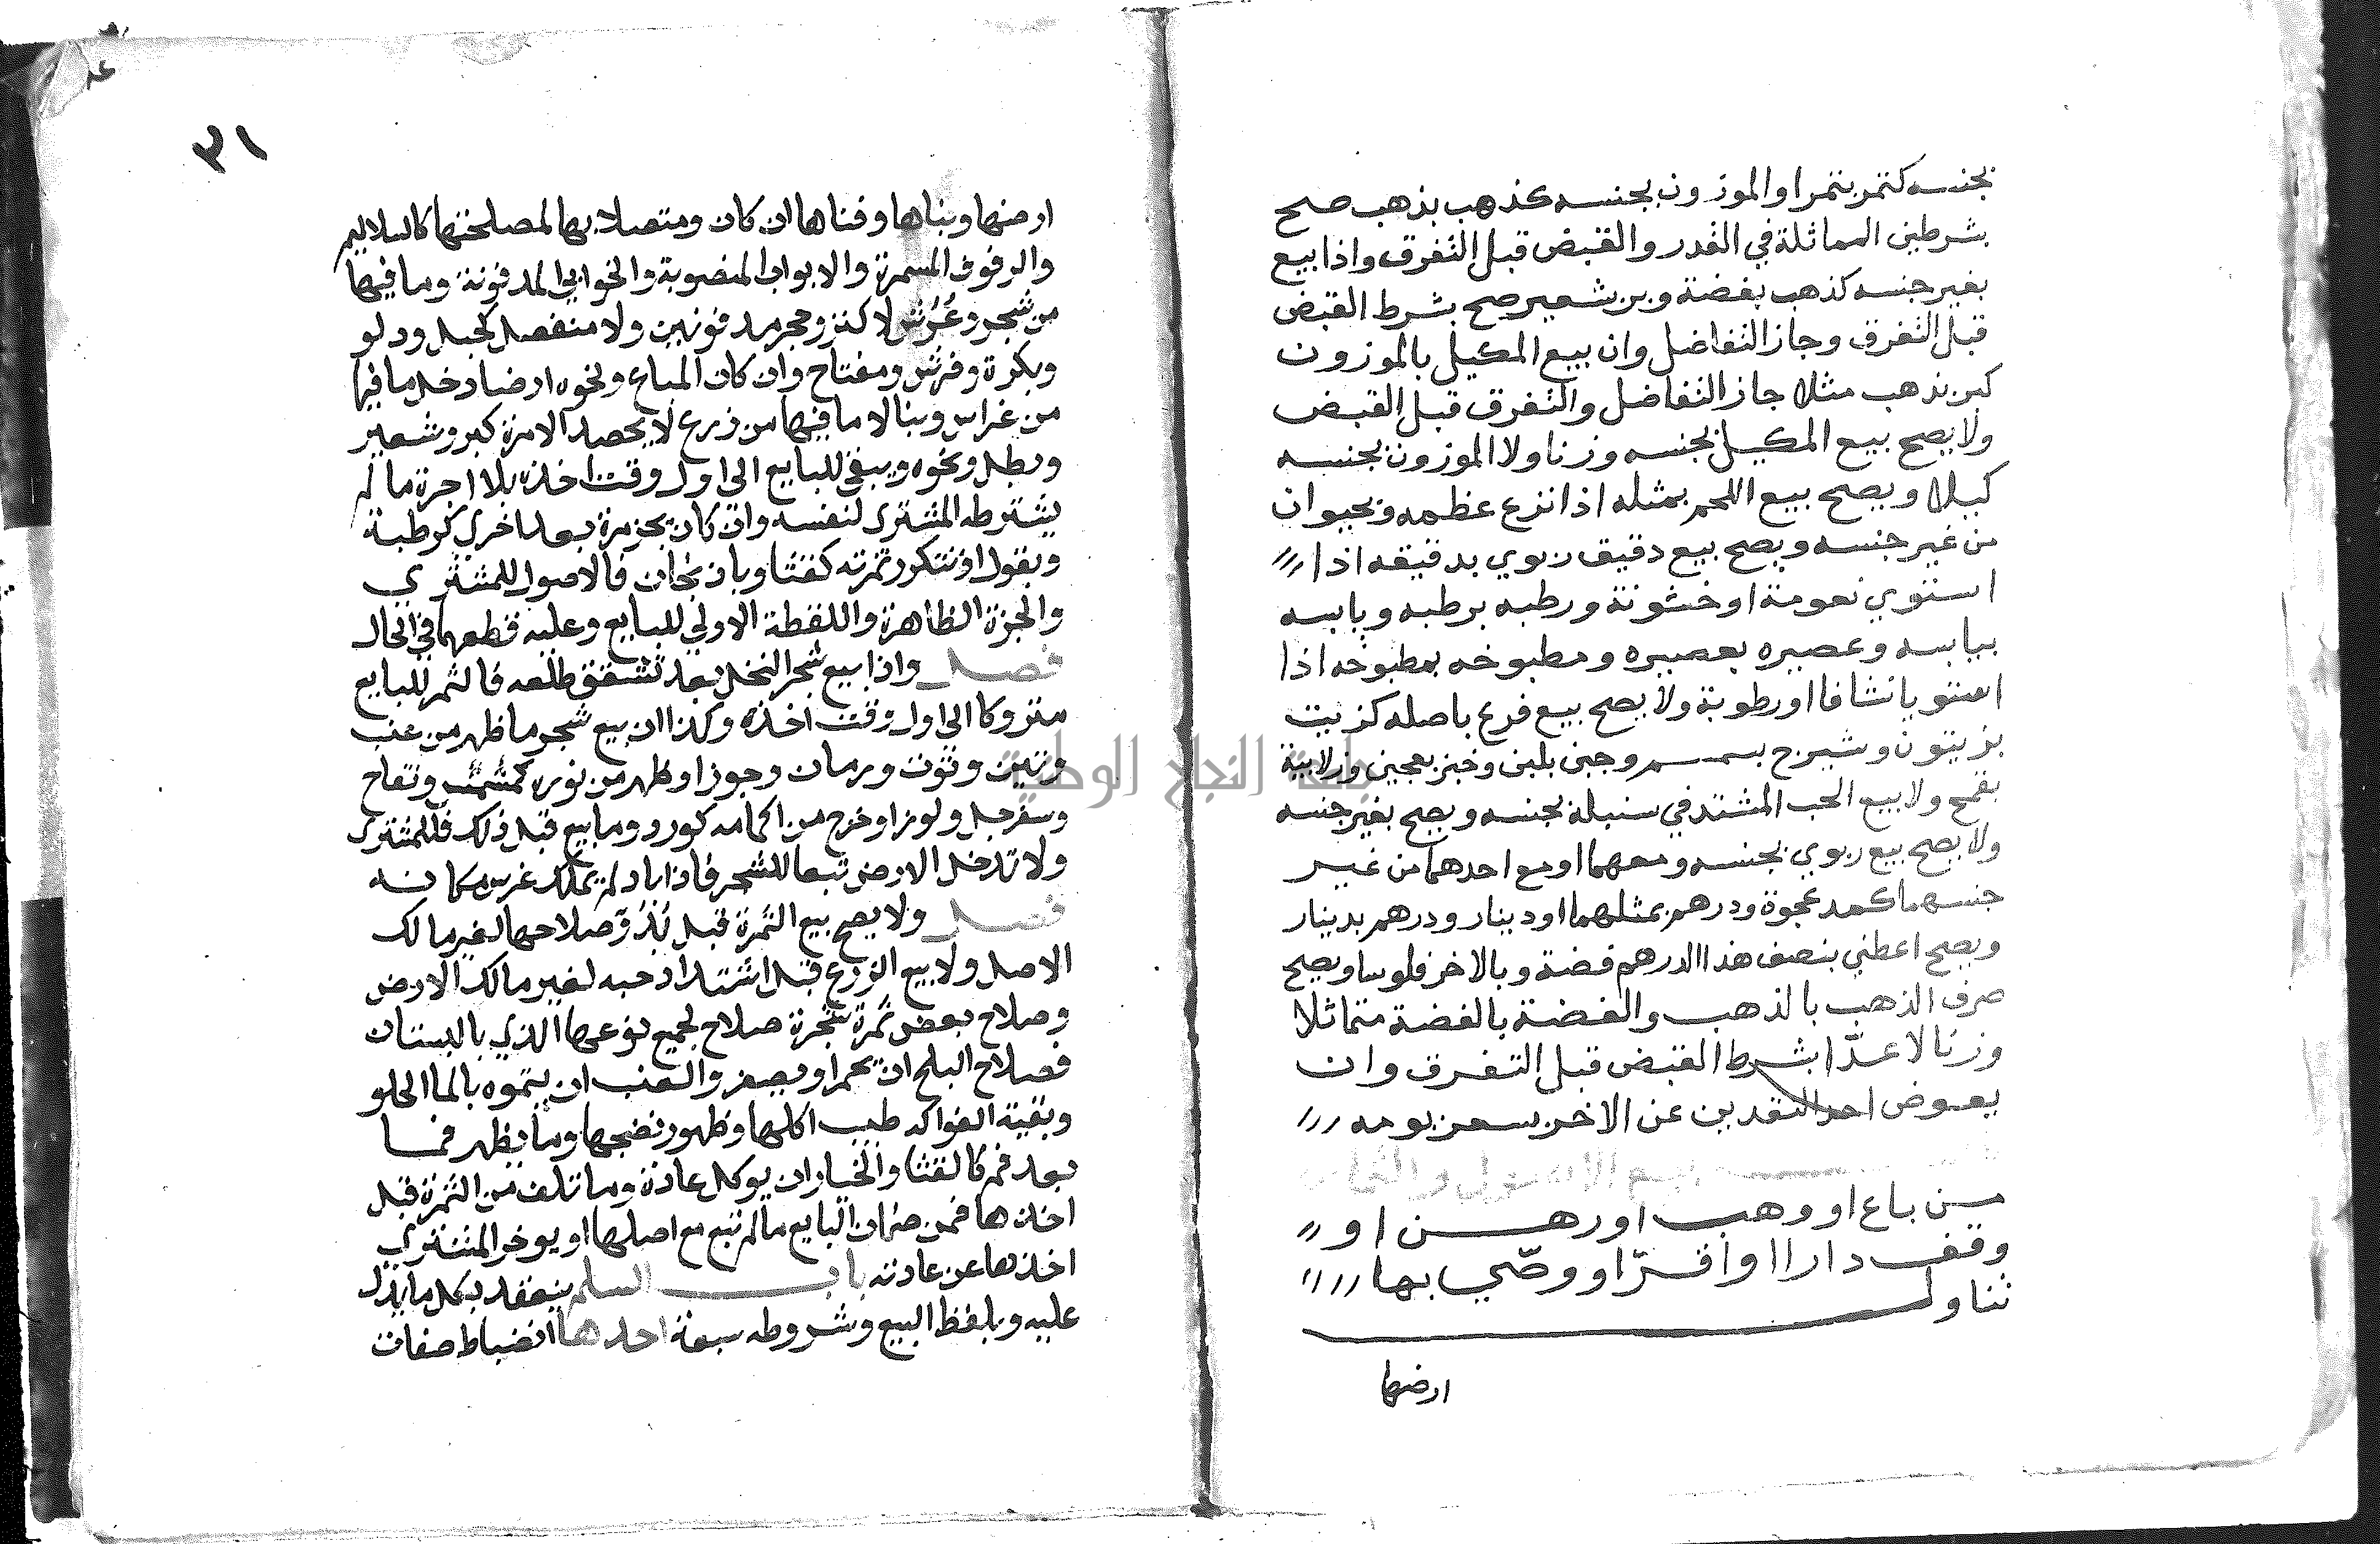 بجنسه كتمر بتمر او الموزون بجنسه كذهب بذهب صح
بشرطين المماثلة في القدر والقبض قبل التفرق واذا بيع
بغير جنسه كذهب بفضة وبر بشعير صح بشرط القبض
قبل التفرق وجاز التفاضل وان بيع المكيل بالموزون
كبر بذهب مثلا جاز التفاضل والتفرق قبل القبض
ولا يصح بيع المكيل بجنسه وزنا ولا الموزون بجنسه
كيلا ويصح بيع اللحم بمثله اذا نزع عظمه وبحيوان
من غير جنسه ويصح بيع دقيق ربوي بدقيقه اذا
استوي نعومة او خشونة ورطبه برطبه ويابسه
بيابسه وعصيره بعصيره ومطبوخه بمطبوخه اذا
استويا نشافا او رطوبة ولا يصح بيع فرع باصله كزيت
بزيتون وشيرج بسمسم وجبن بلبن وخبز بعجين وزلابية
بقمح ولا بيع الحب المشتد في سنبله بجنسه ويصح بغير جنسه
ولا يصح بيع ربوي بجنسه ومعهما او مع احدهما من غير
جنسهما كمد عجوة ودرهم بمثلهما او دينار ودرهم بدينار
ويصح اعطني بنصف هذا الدرهم فضة وبالاخر فلوسا ويصح
صرف الذهب بالذهب والفضة بالفضة متماثلا
وزنا لا عدّا بشرط القبض قبل التفرق وان
يعوض احد النقدين عن الاخر بسعر يومه
بيع الاصول والثمار
من باع او وهب او رهن او
وقف دارا او اقرّ او وصّي بها
تناول
ارضها
٣١
ارضها وبناها وفناها ان كان ومتصلا بها لمصلحتها كالسلاليم
والرفوف المسمرة والابواب المنصوبة والخوابي المدفونة وما فيها
من شجر وعُرُش لا كنز وحجر مدفونين ولا منفصل كحبل ودلو
وبكرة وفرش ومفتاح وان كان المباع ونحوه ارضا دخل ما فيها
من غراس وبنا لا ما فيها من زرع لا يحصد الا مرة كبر وشعير
وبصل ونحوه ويبقي للبايع الى اول وقت اخذه بلا اجرة ما لم
يشترطه المشتري لنفسه وان كان يجز مرة بعد اخري كرطبة
وبقول او تتكرر ثمرته كقثا وباذنجان فالاصول للمشتري
والجزة الظاهرة واللقطة الاولي للبايع وعليه قطعهما في الحال
فصل واذا بيع شجر النخل بعد تشقق طلعه فالثمر للبايع
متروكا الى اول وقت اخذه وكذا ان بيع شجر ما ظهر من عنب
وتين وتوت ورمان وجوز او ظهر من نوره كمشمش وتفاح
وسفرجل ولوز او خرج من اكمامه كورد وما بيع قبل ذلك فللمشتري
ولا تدخل الارض تبعا للشجر فاذا باد لم يملك غرس مكانه
فصل ولا يصح بيع الثمرة قبل بُدُوّ صلاحها لغير مالك
الاصل ولا بيع الزرع قبل اشتداد حبه لغير مالك الارض
وصلاح بعض ثمرة شجرة صلاح لجميع نوعها الذي بالبستان
فصلاح البلح ان يحمر او يصفر والعنب ان يتموه بالما الحلو
وبقية الفواكه طيب اكلها وظهور نضجها وما يظهر فما
بعد فم كالقثا والخيار ان يوكل عادة وما تلف من الثمرة قبل
اخذها فمن ضمان البايع ما لم تبع مع اصلها او يوخر المشتري
اخذها عن عادته باب السلم ينعقد بكل ما يدل
عليه وبلفظ البيع وشروطه سبعة احدها انضباط صفات
جامعة النجاح الوطنية